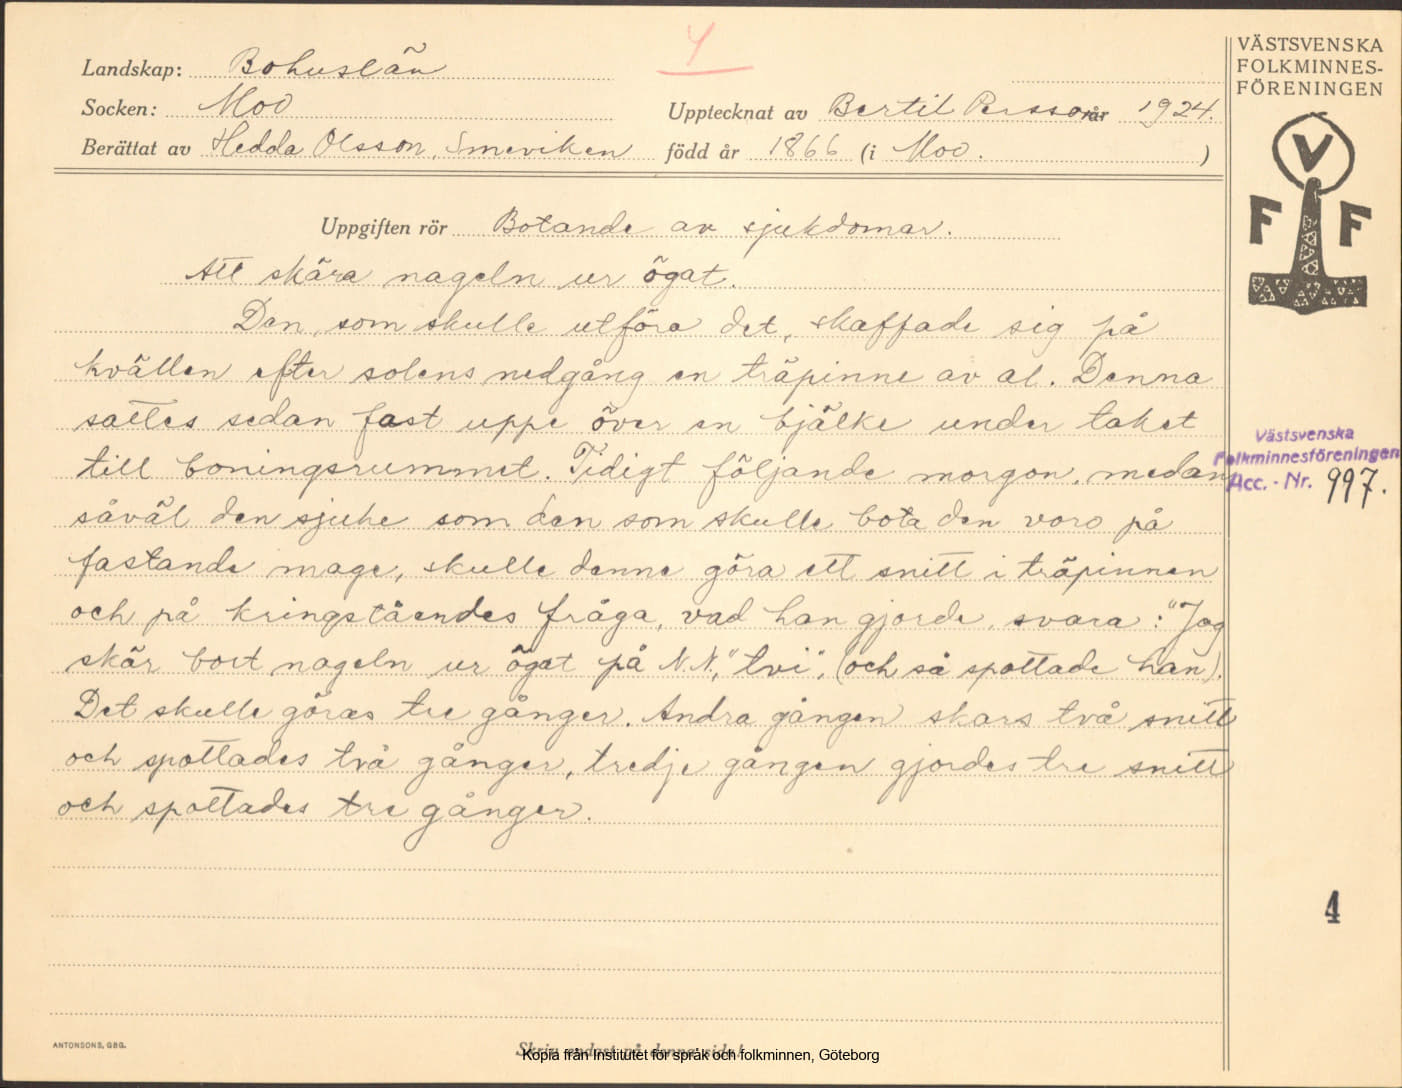 Landskap: Bohuslän
Socken: Moo
Upptecknat av Bertil Persson år 1924.
Berättat av Hedda Olsson, Smeviken född år 1866 (i Moo. )
4
VÄSTSVENSKA
FOLKMINNES-
FÖRENINGEN
V
F F
Uppgiften rör Botande av sjukdomar.
Att skära nageln ur ögat.
Den, som skulle utföra det, skaffade sig på
kvällen efter solens nedgång en träpinne av al. Denna
sattes sedan fast uppe över en bjälke under taket
till boningsrummet. Tidigt följande morgon, medan
såväl den sjuke som den som skulle bota den voro på
fastande mage, skulle denne göra ett snitt i träpinnen
och på kringståendes fråga, vad han gjorde, svara: "Jag
skär bort nageln ur ögat på N.N.," "tvi", (och så spottade han).
Det skulle göras tre gånger. Andra gången skars två snitt
och spottades två gånger, tredje gången gjordes tre snitt
och spottades tre gånger.
Västsvenska
Folkminnesföreningen
Acc. - Nr. 997.
4
ANTONSONS, GBG.
Skriv endast på denna sida!
Kopia från Institutet för språk och folkminnen, Göteborg